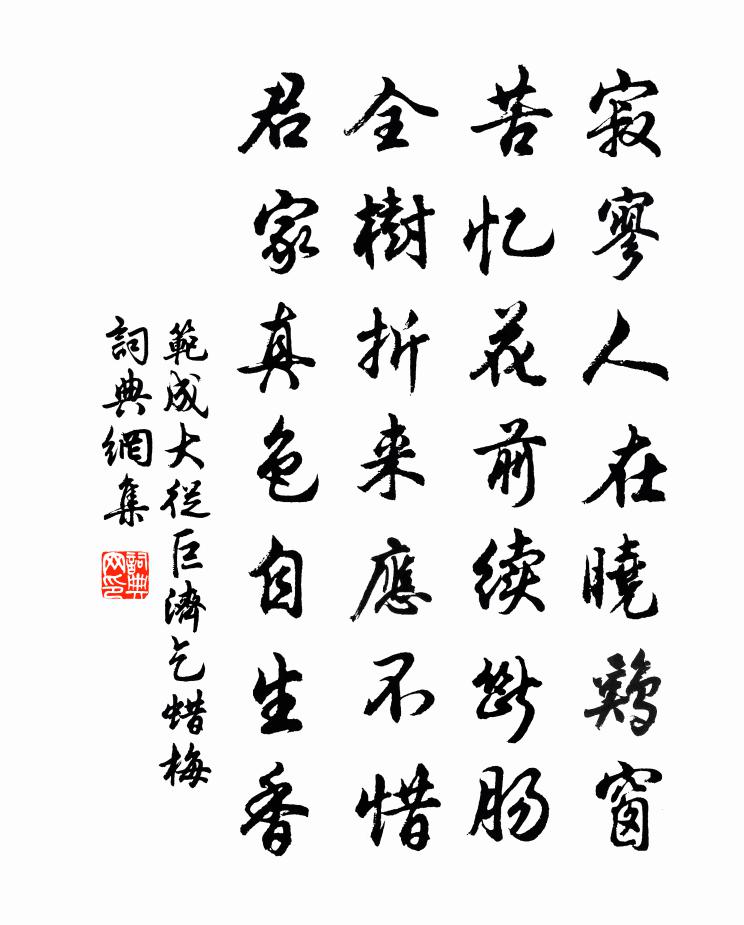 寂寥人在曉鷄窗
苦忆花前续斷肠
全樹折来應不惜
君家真色自生香
範成大從巨濟乞蜡梅
詞典網集
詞典网印